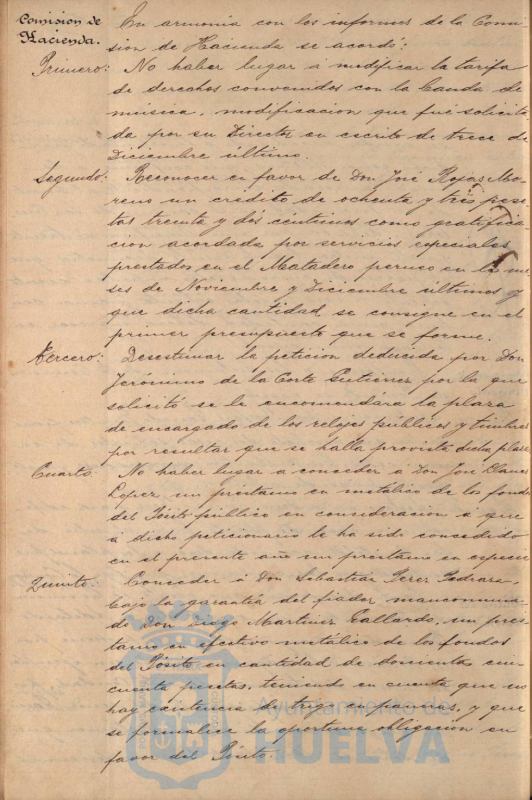 Comision de
Hacienda.
En armonía con los informes de la Comi-
sion de Hacienda se acordó:
Primero: No haber lugar á modificar la tarifa
de derechos convenidos con la banda de
música, modificacion que fué solicita
da por su Director en escrito de trece de
Diciembre último.
Segundo: Reconocer en favor de Don José Rojas Mo-
reno un crédito de ochenta y tres pese
tas treinta y dos céntimos como gratifica
cion acordada por servicios especiales
prestados en el Matadero perneo en los me
ses de Noviembre y Diciembre últimos y
que dicha cantidad se consigne en el
primer presupuesto que se forme.
Tercero: Desestimar la peticion deducida por Don
Jerónimo de la Corte Gutierrez por la que
solicitó se le encomendára la plaza
de encargado de los relojes públicos y timbres
por resultar que se halla provista dicha plaza
Cuarto: No haber lugar á conceder á Don José
Lopez un préstamo en metálico de los fondos
del Pósito público en consideracion á que
á dicho peticionario le ha sido concedido
en el presente año un préstamo en especie
Quinto: Conceder á Don Sebastián Perez Pedraza,
bajo la garantía del fiador mancomuna-
do Don Diego Martinez Gallardo, un prés
tamo en efectivo metálico de los fondos
del Pósito en cantidad de doscientas cin
cuenta pesetas, teniendo en cuenta que no
hay existencia de trigo en paneras, y que
se formalice la oportuna obligacion en
favor del Pósito.
Ayuntamiento de
HUELVA